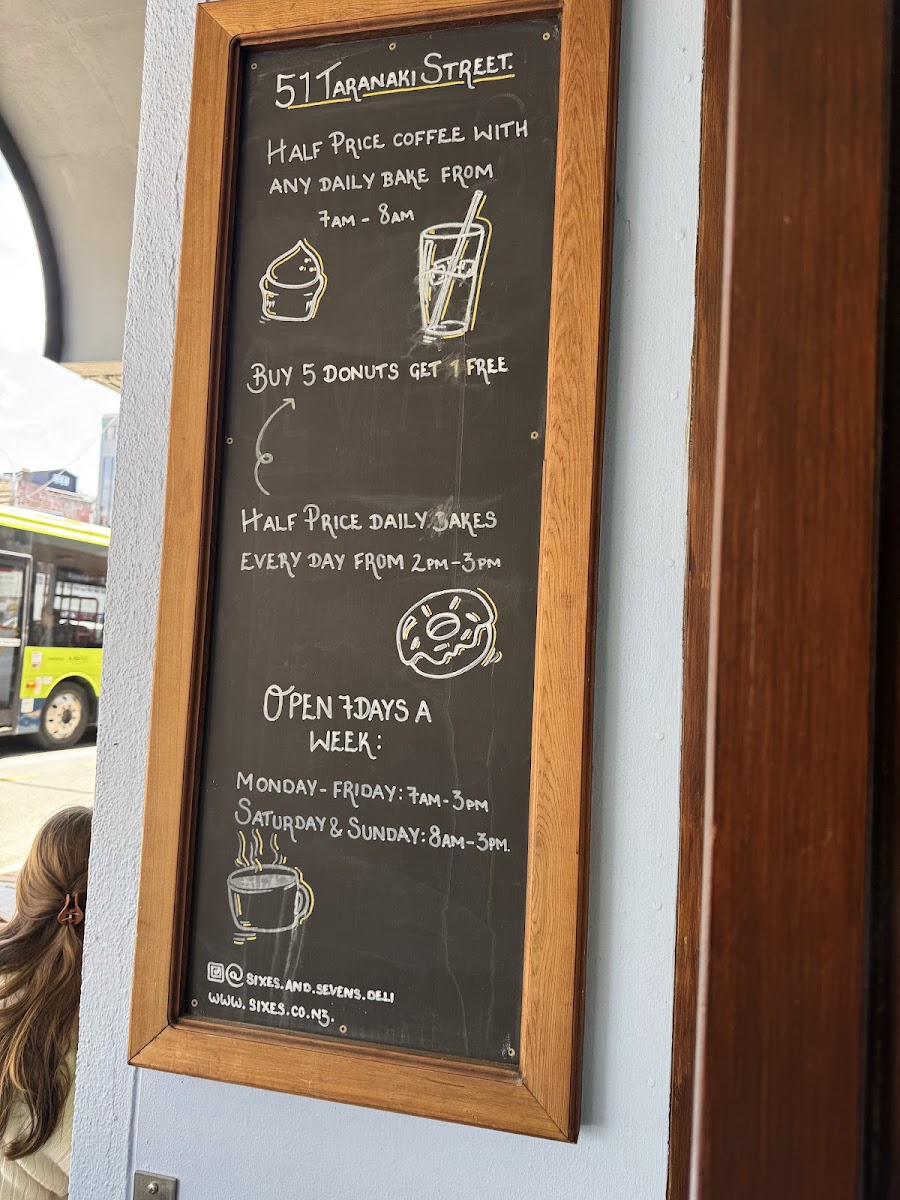 51 TARANAKI STREET.
HALF PRICE COFFEE WITH
ANY DAILY BAKE FROM
7AM - 8AM
BUY 5 DONUTS GET 1 FREE
HALF PRICE DAILY BAKES
EVERY DAY FROM 2PM-3PM
OPEN 7 DAYS A
WEEK:
MONDAY - FRIDAY: 7AM-3PM
SATURDAY & SUNDAY: 8AM-3PM.
@SIXES.AND.SEVENS.DELI
WWW.SIXES.CO.NZ.